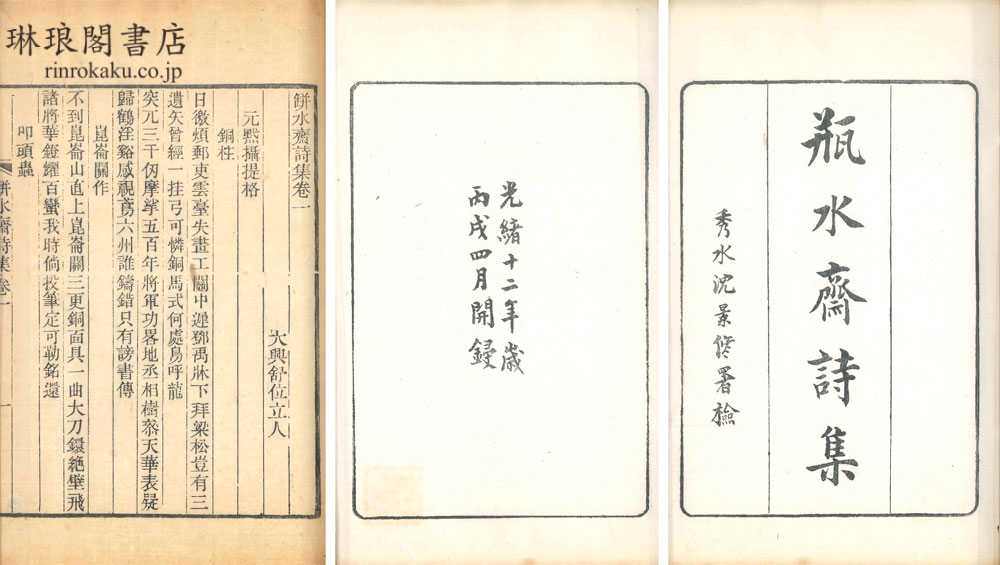 瓶水齋詩集
秀水沈景修署檢
光緒十二年歲
丙戌四月開鋟
琳琅閣書店
rinrokaku.co.jp
缾水齋詩集卷一
大興舒位立人
元黓攝提格
銅柱
日徼煩郵吏雲臺失畫工關中遲鄧禹牀下拜梁松豈有三
遺矢曾經一挂弓可憐銅馬式何處鳥呼龍
突兀三千仞摩挲五百年將軍功畧地丞相樹叅天華表疑
歸鶴淫谿感視鳶六州誰鑄錯只有謗書傳
崑崙關作
不到崑崙山直上崑崙關三更銅面具一曲大刀鐶絕壁飛
諸將華鐙耀百蠻我時倘投筆定可勒銘還
叩頭蟲
缾水齋詩集卷一
一